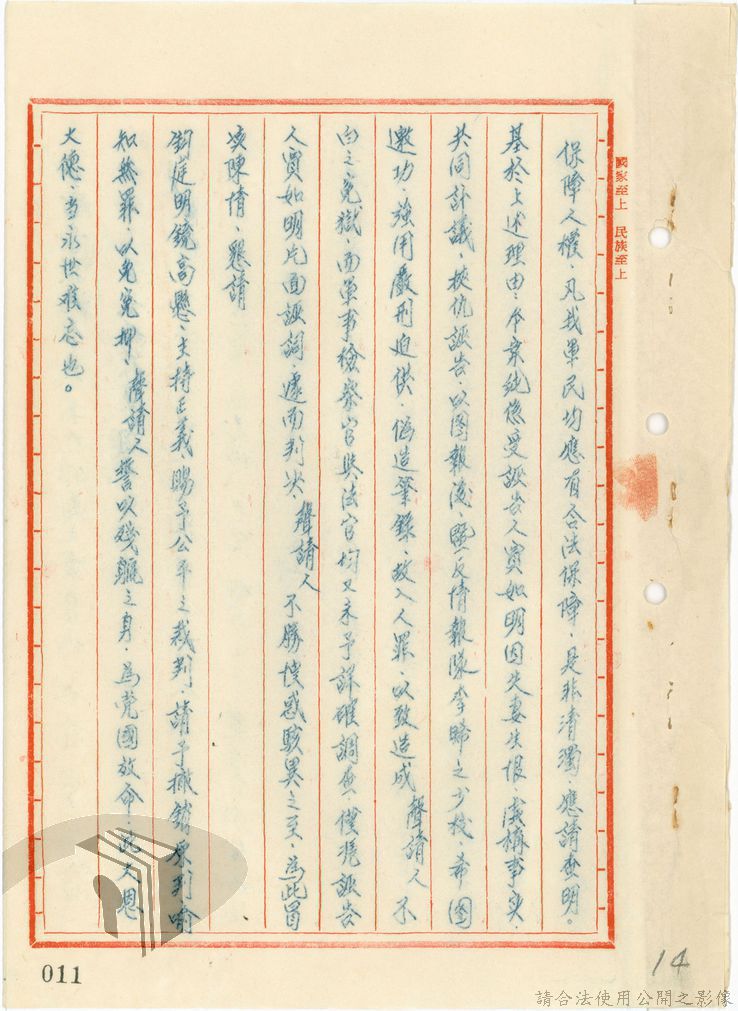 國家至上 民族至上
保障人權、凡我軍民均應有合法保障、是非清濁、應請查明。
基於上述理由、本案純係受誣告人實如明因失妻生恨、虛構事实、
共同計議、挾仇誣告、以圖報復、暨反情報隊李歸之少校、希圖
邀功、強用嚴刑迫供、偽造筆錄、故入人罪、以致造成 聲請人不
白之冤獄、而軍事檢察官與法官均又未予詳確調查、僅憑誣告
人實如明片面誣詞、遽而判决、聲請人不勝惶惑駭異之至、為此冒
凟陳情、懇請
鈞庭明鏡高懸、主持正義賜予公平之裁判、請予撤銷原判喻
知無罪、以免冤押、聲請人誓以殘軀之身、為党國效命、此大恩
大德、当永世难忘也。
011
14
請合法使用公開之影像